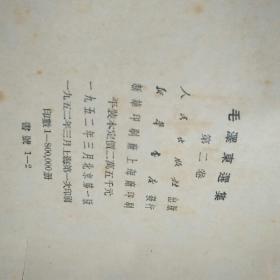 毛澤東選集
第二卷
人民出版社出版
新華書店發行
新華印刷廠上海廠印刷
平裝本定價二萬五千元
一九五二年三月北京第一版
一九五二年三月上海第一次印刷
印數1—800,000冊
書號1—2